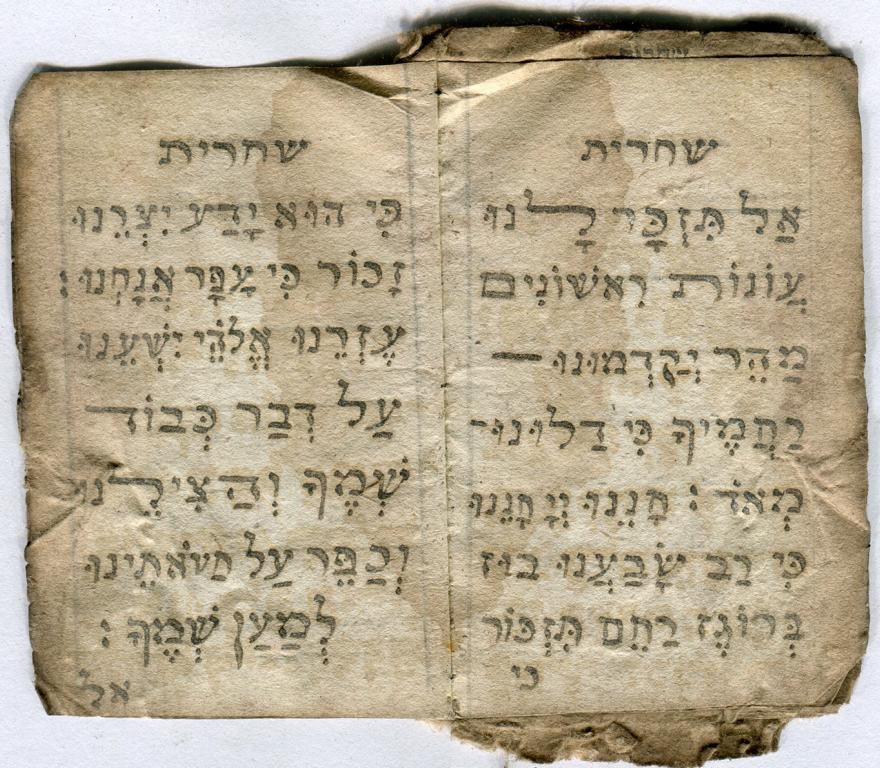 שחרית
אַל תִּזְכָּר לָנוּ
עֲוֹנוֹת רִאשׁוֹנִים
מַהֵר יְקַדְּמוּנוּ —
רַחֲמֶיךָ כִּי דַלוּנוּ
מְאֹד : חָנֵנוּ יְיָ חָנֵנוּ
כִּי רַב שָׂבַעֲנוּ בוּז
בְּרוֹגֶז רַחֵם תִּזְכּוֹר
כי
שחרית
כִּי הוּא יָדַע יִצְרֵנוּ
זָכוֹר כִּי עָפָר אֲנָחְנוּ :
עָזְרֵנוּ אֱלֹהֵי יִשְׁעֵנוּ
עַל דְבַר כְּבוֹד
שְׁמֶךָ וְהַצִילֵנוּ
וְכַפֵּר עַל חַטֹאתֵינוּ
לְמַעַן שְׁמֶךָ :
אל